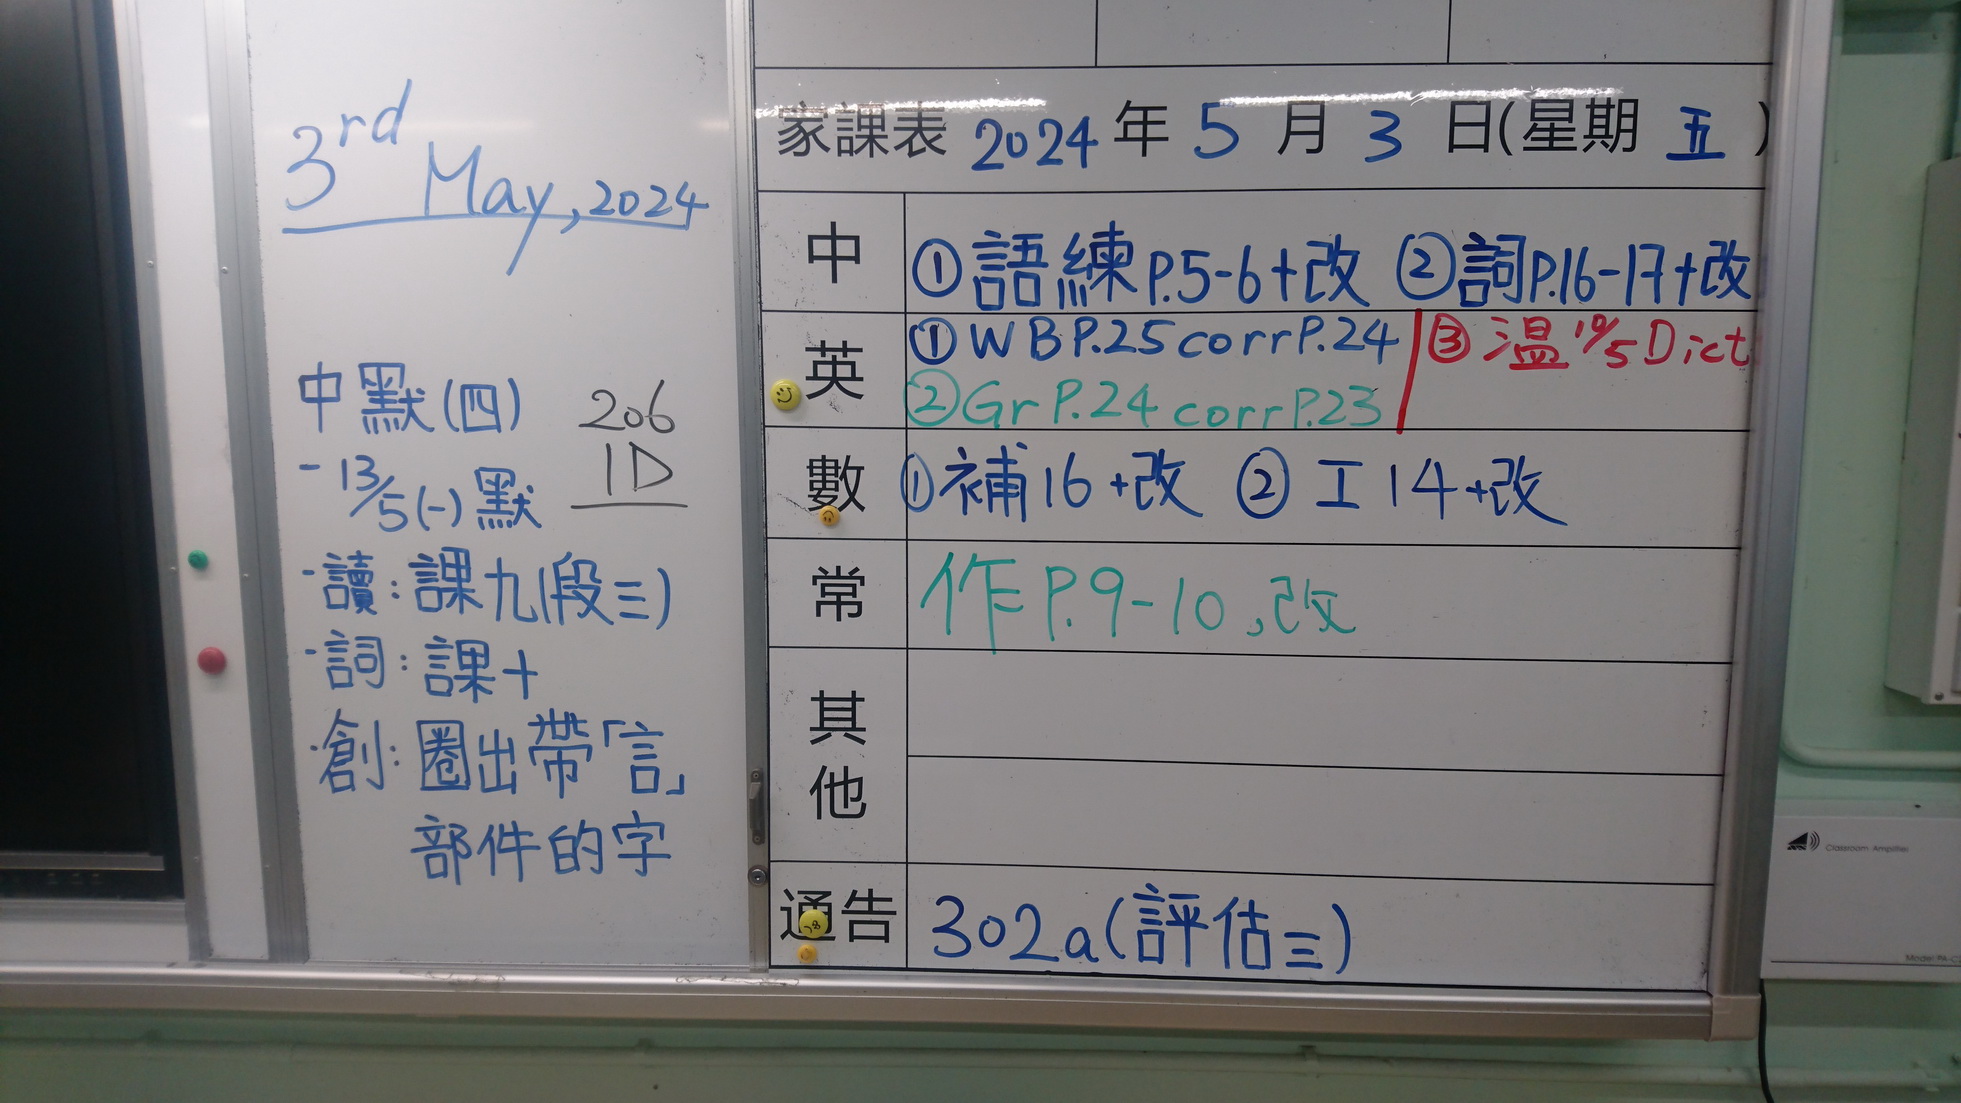 3rd May, 2024
中默(四)
206
1D
- 13/5(一)默
·讀:課九(段三)
·詞:課十
·創:圈出帶「言」
部件的字
家課表 2024 年 5 月 3 日(星期 五 )
中 ①語練P.5-6+改 ②詞P.16-17+改
英 ①WBP.25corrP.24 ③溫10/5Dict
②GrP.24 corrP.23
數 ①補16+改 ②工14+改
常 作P.9-10,改
其他
通告 302a(評估三)
Classroom Amplifier